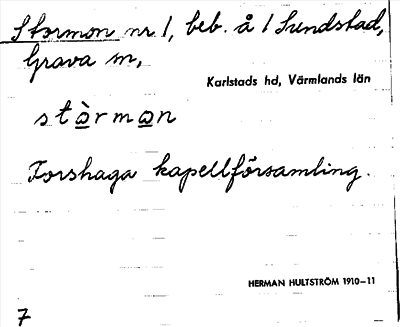 Stormon nr 1, beb. å 1 Sundstad,
Grava sn,
Karlstads hd, Värmlands län
stà̱rma̱n
Forshaga kapellförsamling.
HERMAN HULTSTRÖM 1910–11
7